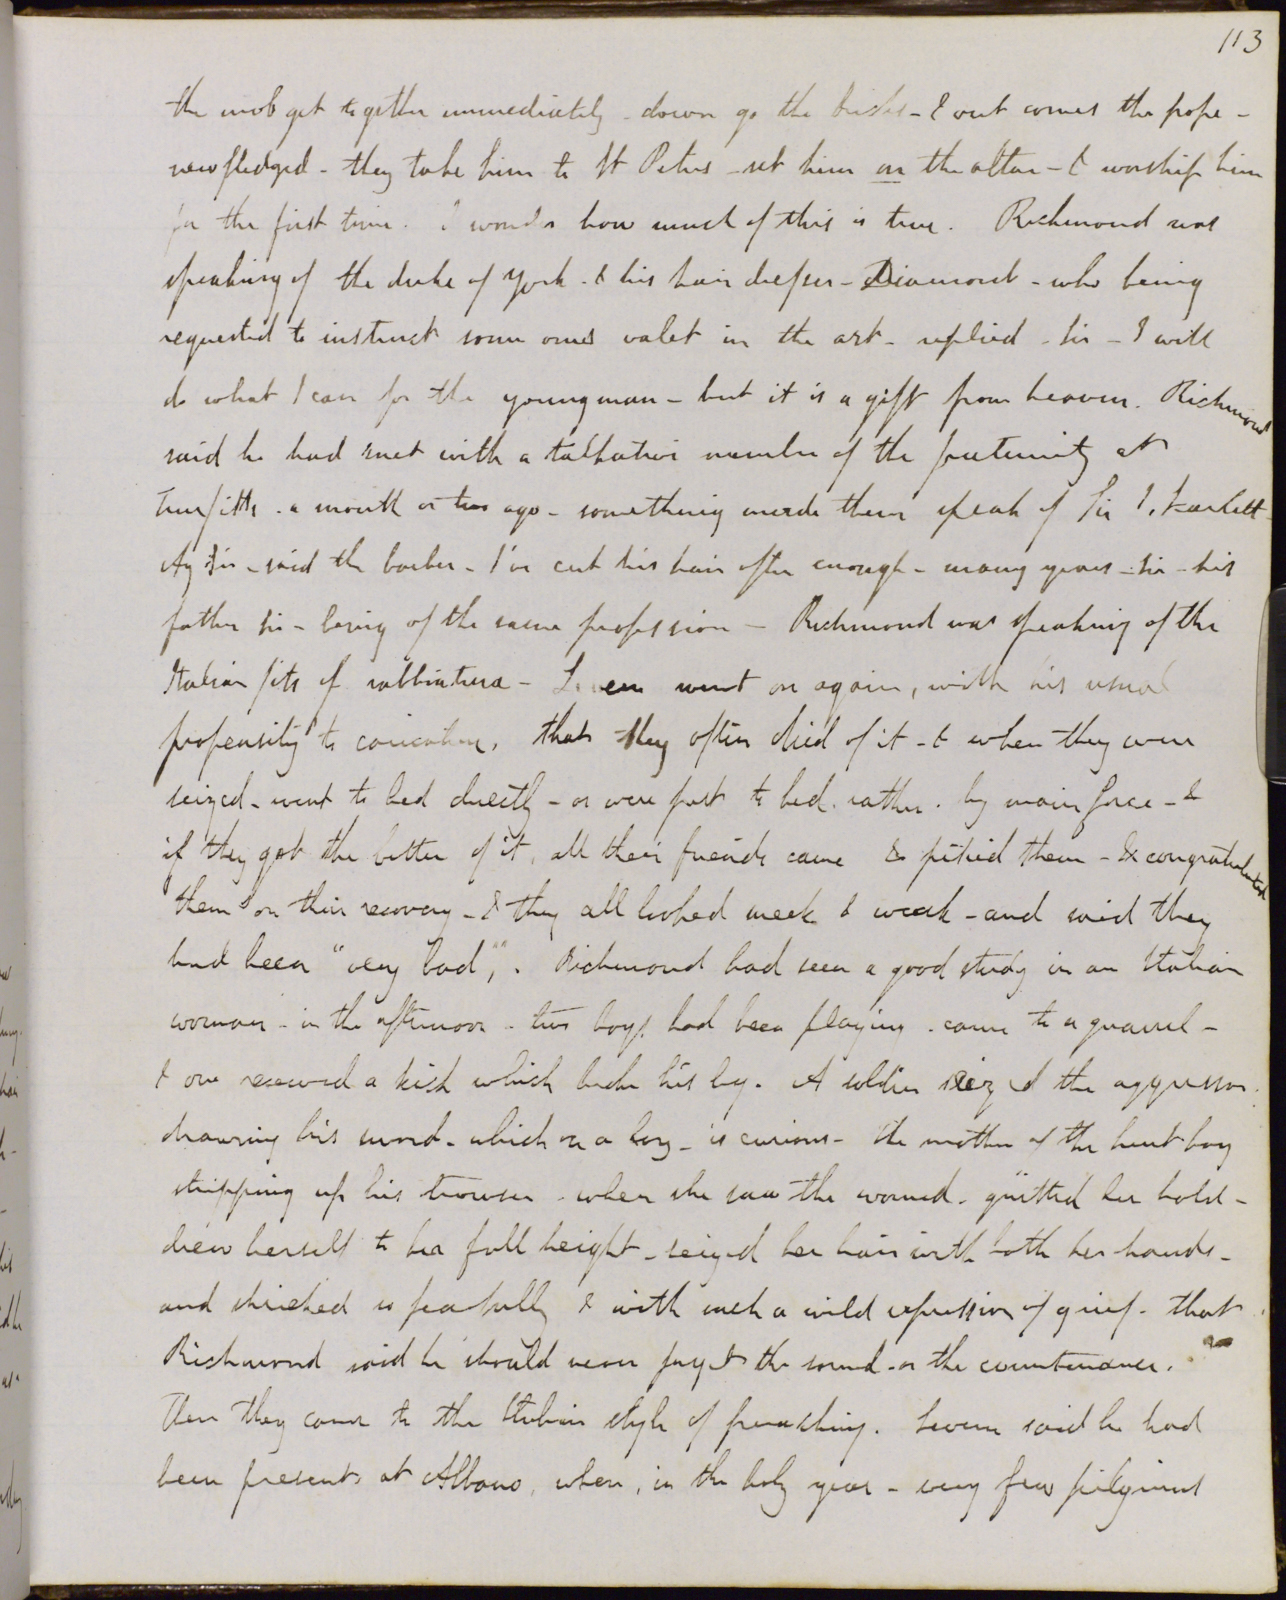 113
the mob get together immediately - down go the bricks - & out comes the pope -
newfledged - they take him to St Peters - set him on the altar - & worship him
for the first time. I wonder how much of this is true. Richmond was
speaking of the duke of York - & his hair dresser - Diamond - who being
requested to instruct some ones valet in the art - replied - Sir - I will
do what I can for the young man - but it is a gift from heaven. Richmond
said he had met with a talkative member of the fraternity at
Truefitts - a month or two ago - something made them speak of Sir J. Scarlett -
Ay Sir - said the barber - I've cut his hair often enough - many years - sir - his
father sir - being of the same profession - Richmond was speaking of the
Italian fits of rabbiatura - Severn went on again, with his usual
propensity to caricature, that they often died of it - & when they were
seized - went to bed directly - or were put to bed rather - by main force - &
if they got the better of it, all their friends came & pitied them - & congratulated
them on their recovery - & they all looked meek & weak - and said they
had been "very bad",. Richmond had seen a good study in an Italian
woman - in the afternoon - two boys had been playing - came to a quarrel -
& one received a kick which broke his leg. A soldier seized the aggressor
drawing his sword - which on a boy - is curious - The mother of the hurt boy
stripping up his trouser - when she saw the wound - quitted her hold -
drew herself to her full height - seized her hair with both her hands -
and shrieked so fearfully & with such a wild expression of grief - that
Richmond said he should never forget the sound - or the countenance.
Then they came to the Italian style of preaching. Severn said he had
been present at Albano, when, in the holy year - very few pilgrims